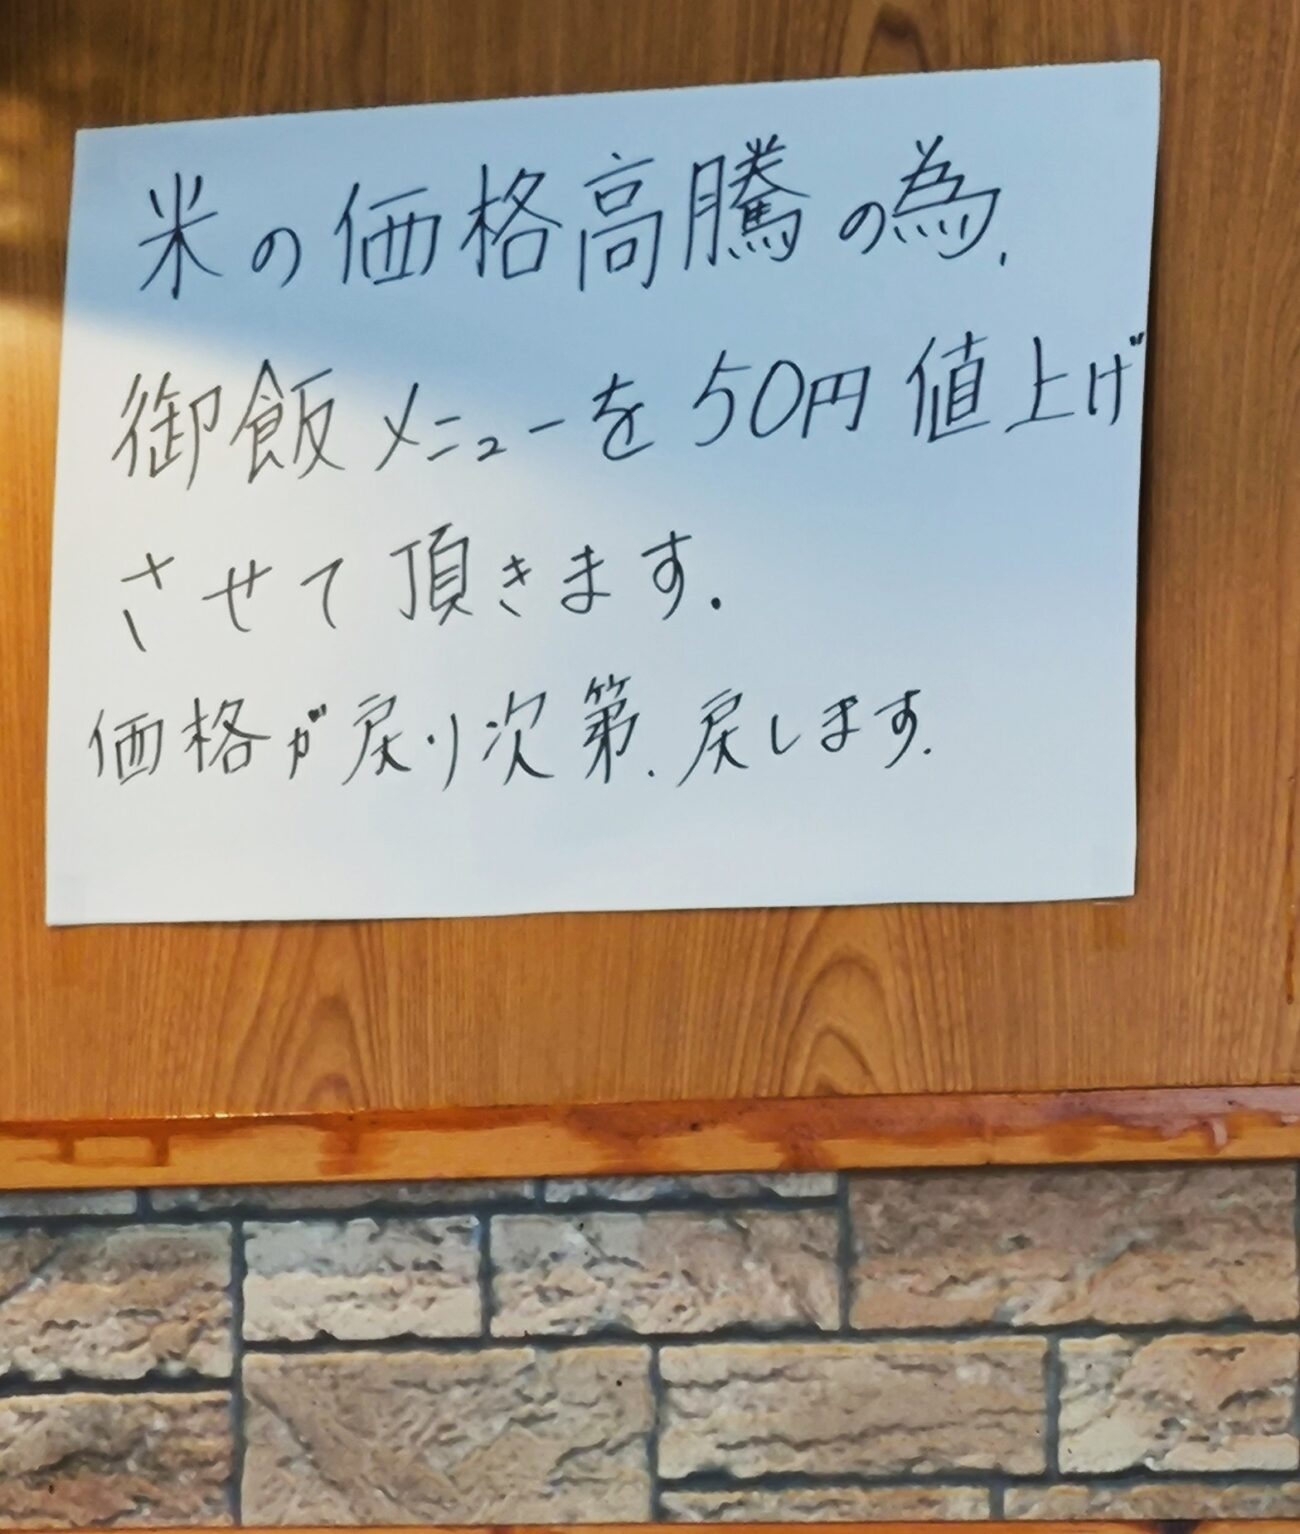 米の価格高騰の為.
御飯メニューを50円値上げ
させて頂きます.
価格が戻り次第.戻します.